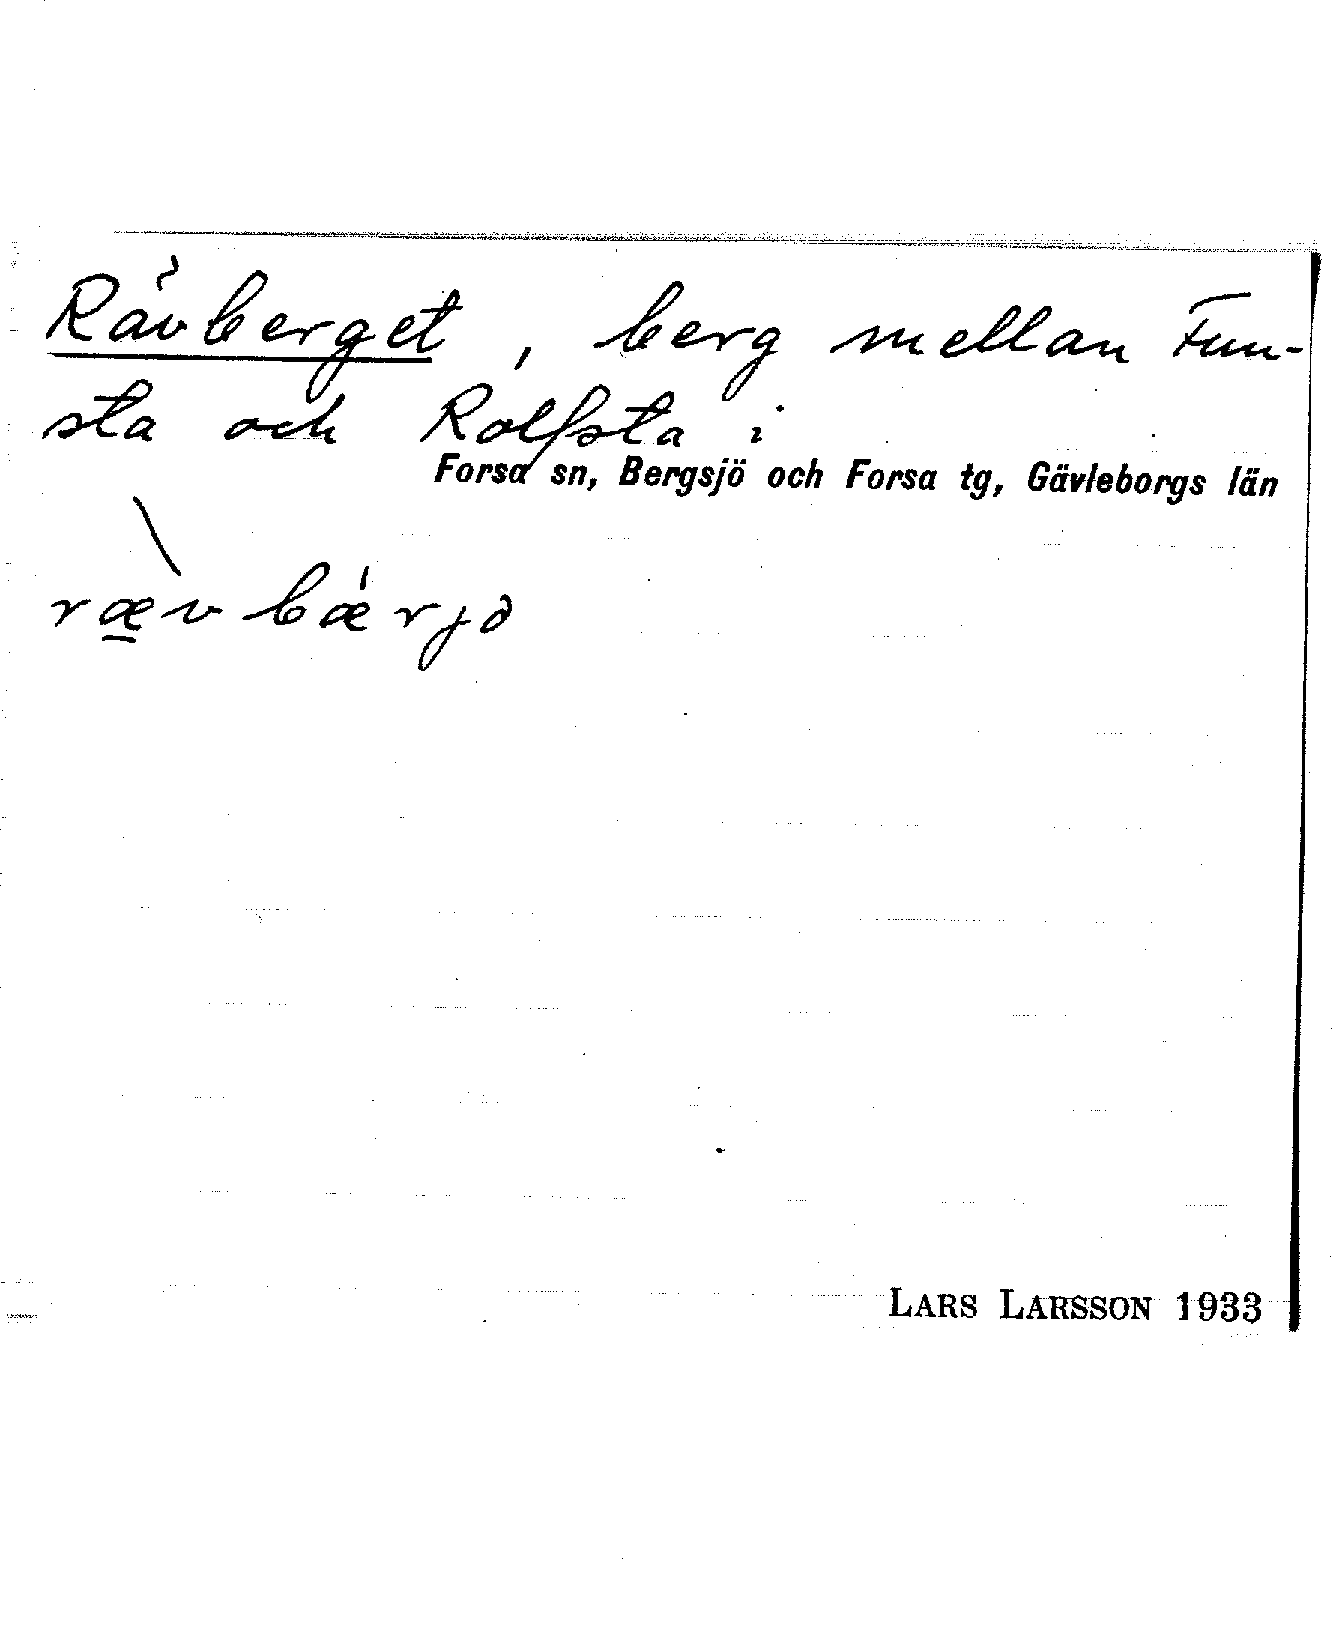 Rävberget, berg mellan Fun-
sta och Rolfsta i
Forsa sn, Bergsjö och Forsa tg, Gävleborgs län
rævbærjə
LARS LARSSON 1933